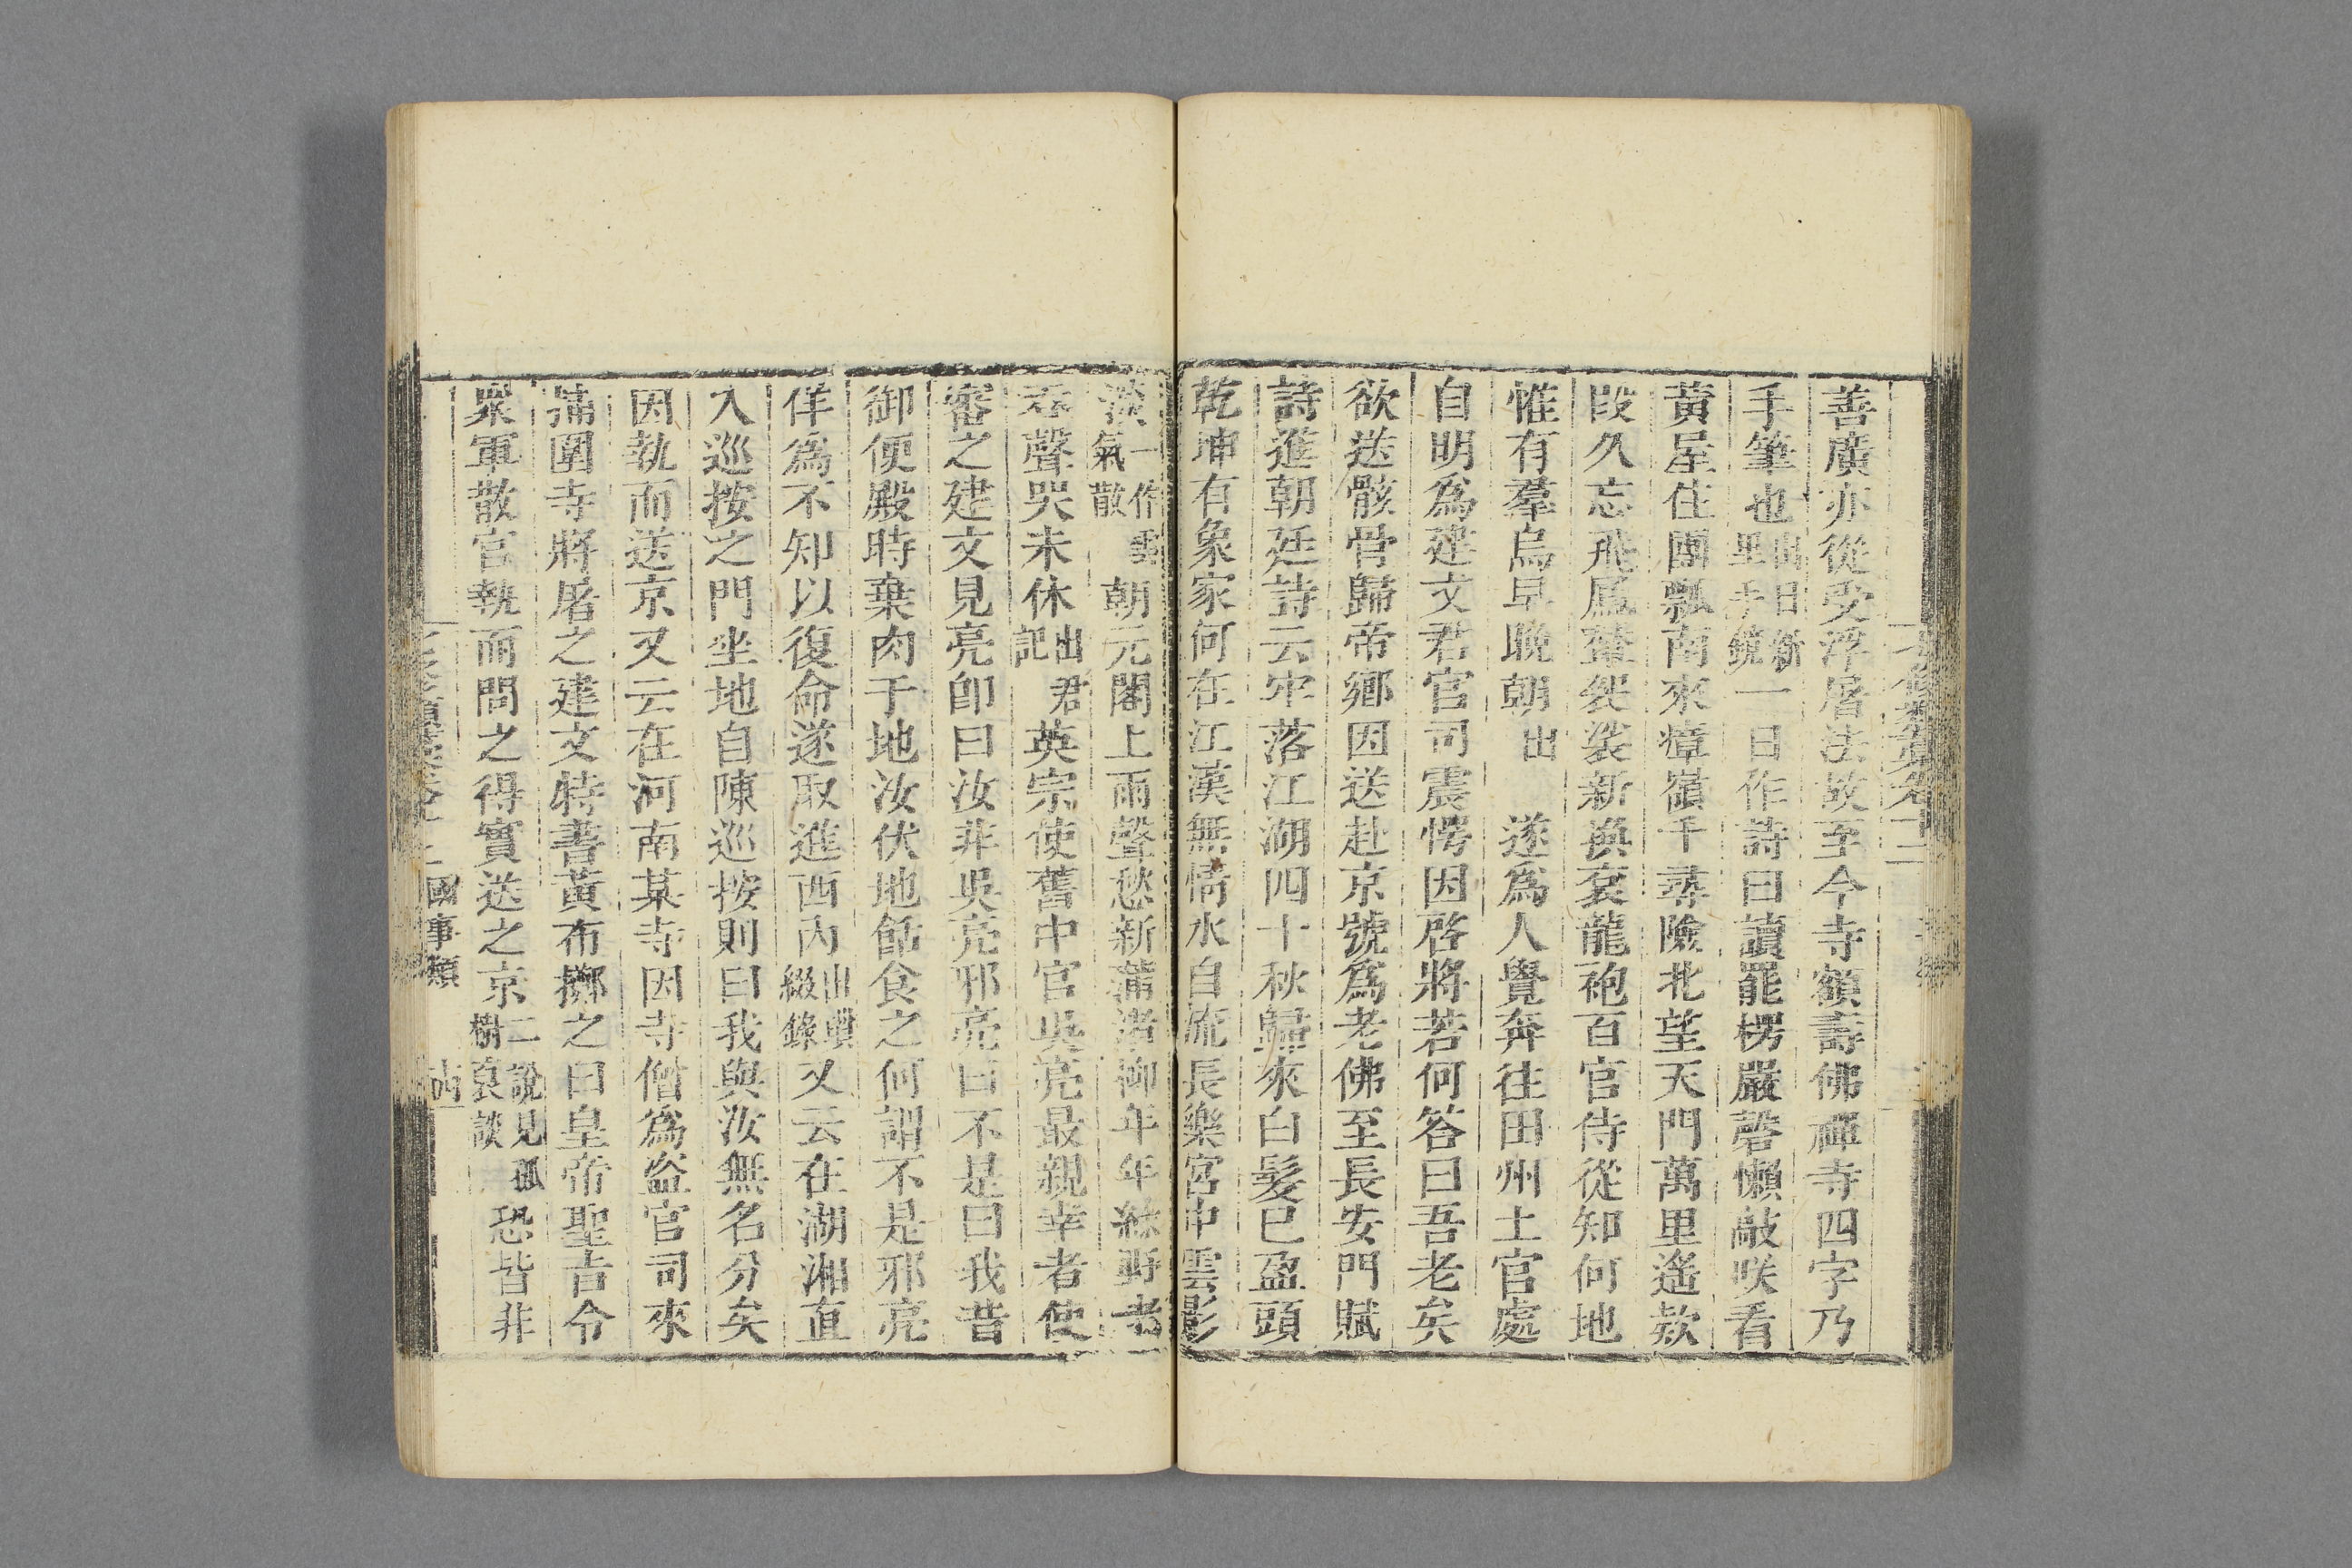 善廣亦從受浮屠法故至今寺額壽佛禪寺四字乃
手筆也出日新里手鏡一日作詩曰讀罷楞嚴磬懶敲咲看
黃屋住團瓢南來瘴嶺千尋險北望天門萬里遙欵
段久忘飛鳳輦袈裟新換袞龍袍百官侍從知何地
惟有羣烏早晚朝出遂為人覺奔往田州土官處
自明為建文君官司震愕因啓將若何答曰吾老矣
欲送骸骨歸帝鄉因送赴京號為老佛至長安門賦
詩進朝廷詩云牢落江湖四十秋歸來白髮已盈頭
乾坤有象家何在江漢無情水自流長樂宮中雲影
淡一作雲氣散朝元閣上雨聲愁新蒲細柳年年綠野老
吞聲哭未休出君記英宗使舊中官吳亮最親幸者使
審之建文見亮卽曰汝非吳亮邪亮曰不是曰我昔
御便殿時棄肉于地汝伏地餂食之何謂不是邪亮
佯為不知以復命遂取進西內出瑣綴錄又云在湖湘直
入巡按之門坐地自陳巡按則曰我與汝無名分矣
因執而送京又云在河南某寺因寺僧為盜官司來
捕圍寺將屠之建文特書黃布擲之曰皇帝聖旨令
眾軍散官執而問之得實送之京二說見孤樹裒談恐皆非
國事類